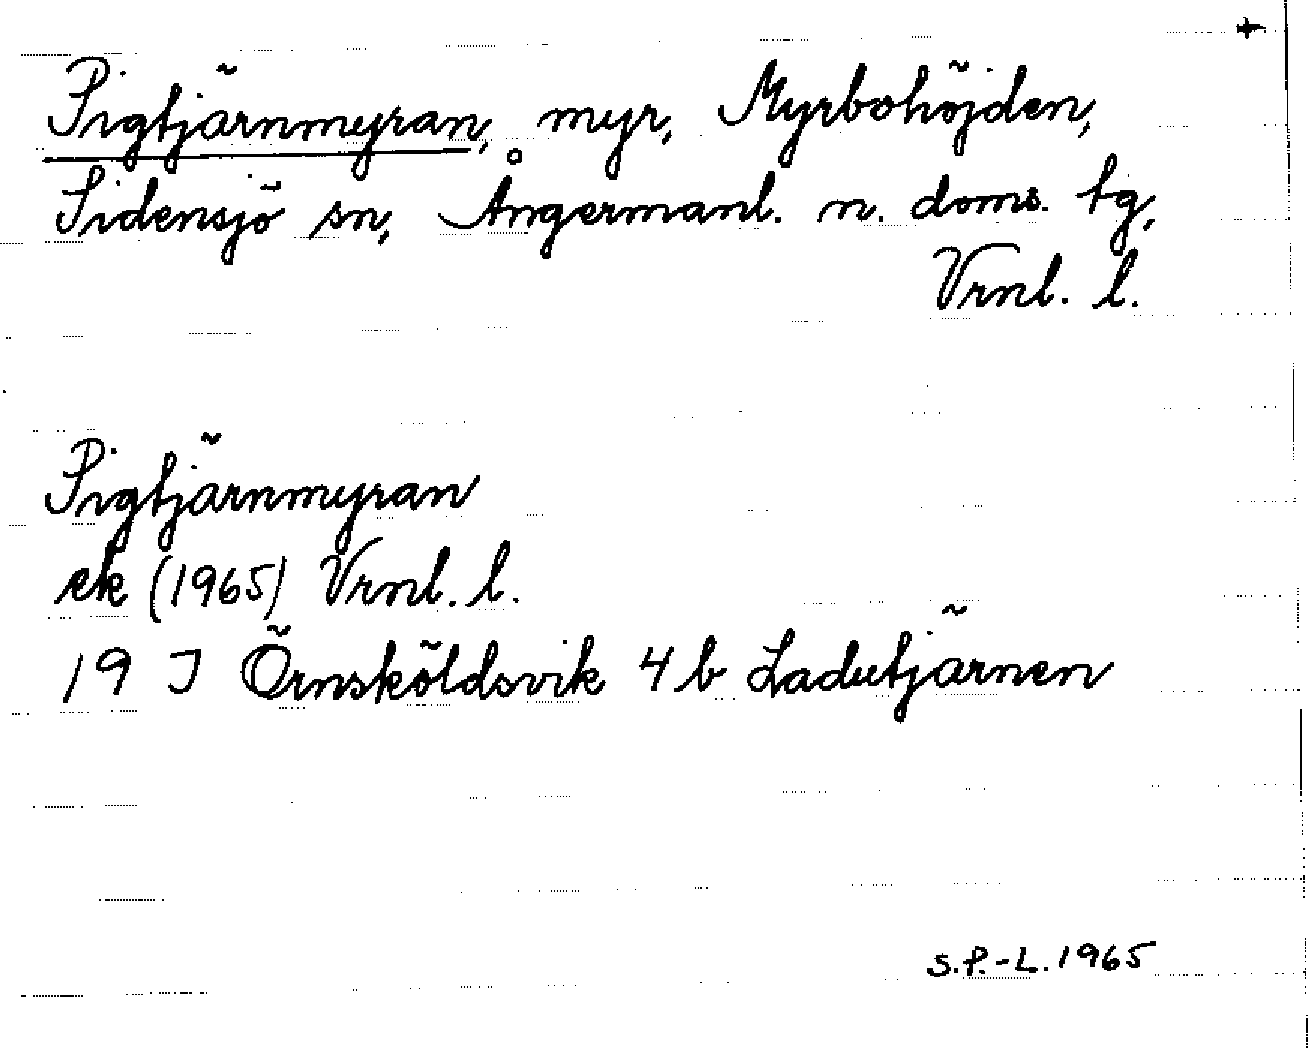 +
Pigtjärnmyran, myr, Myrbohöjden,
Sidensjö sn, Ångermanl. n. doms. tg,
Vrnl. l.
Pigtjärnmyran
ek (1965) Vrnl. l.
19 J Örnsköldsvik 4 b Ladutjärnen
S.P.-L. 1965